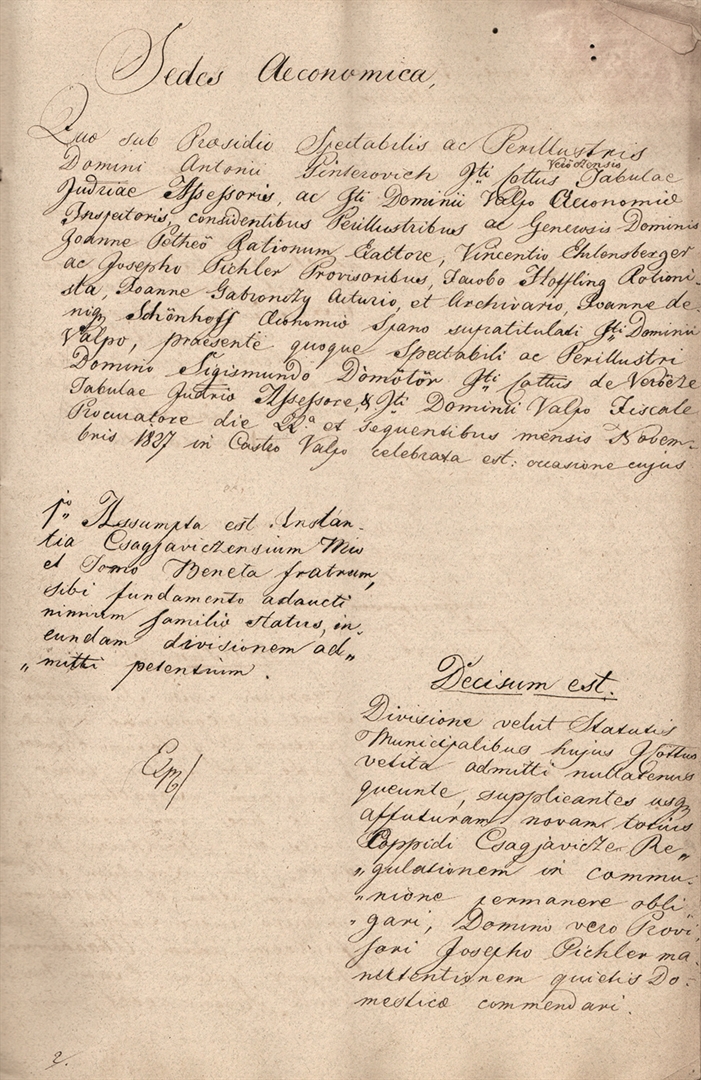 Sedes Aeconomica,
Quae sub Praesidio Spectabilis ac Perillustris
Domini Antonii Pinterovich Iti Cottus Veröczensis Tabulae
Judriae Assessoris, ac Iti Dominii Valpo Aeconomiae
Inspectoris, considentibus Perillustribus ac Generosis Dominis
Joanne Petheö Rationum Exactore, Vincentio Ehlensberger
ac Josepho Pichler Provisoribus, Jacobo Hoffling Rationi-
sta, Joanne Gabronszy Actuario, et Archivario, Joanne de-
niq Schönhoff Aeconomio Spano supratitulati Iti Dominii
Valpo, praesente quoque Spectabili ac Perillustri
Domino Sigismundo Dömötör Iti Cottus de Verőcze
Tabulae Judrio Assessore, & Iti Dominii Valpo Fiscale
Procuratore die 22a et sequentibus mensis Novem-
bris 1827 in Castro Valpo celebrata est: occasione cujus
1o Assumpta est Instan-
tia Csagjaviczensium Mio
et Tomo Beneta fratrum,
sibi fundamento adaucti
nimium familiae status, in-
eundam divisionem ad„
„mitti petentium.
Decisum est.
Divisione velut Statutis
Municipalibus hujus Icottus
vetita admitti nullatenus
queunte, supplicantes usq
affuturam novam totius
Oppidi Csagjavicze Re„
„gulationem in commu-
„nione permanere obli
„gari, Domino vero Provi
sori Josepho Pichler ma-
nutentionem quietis Do-
mesticae commendari.
2.